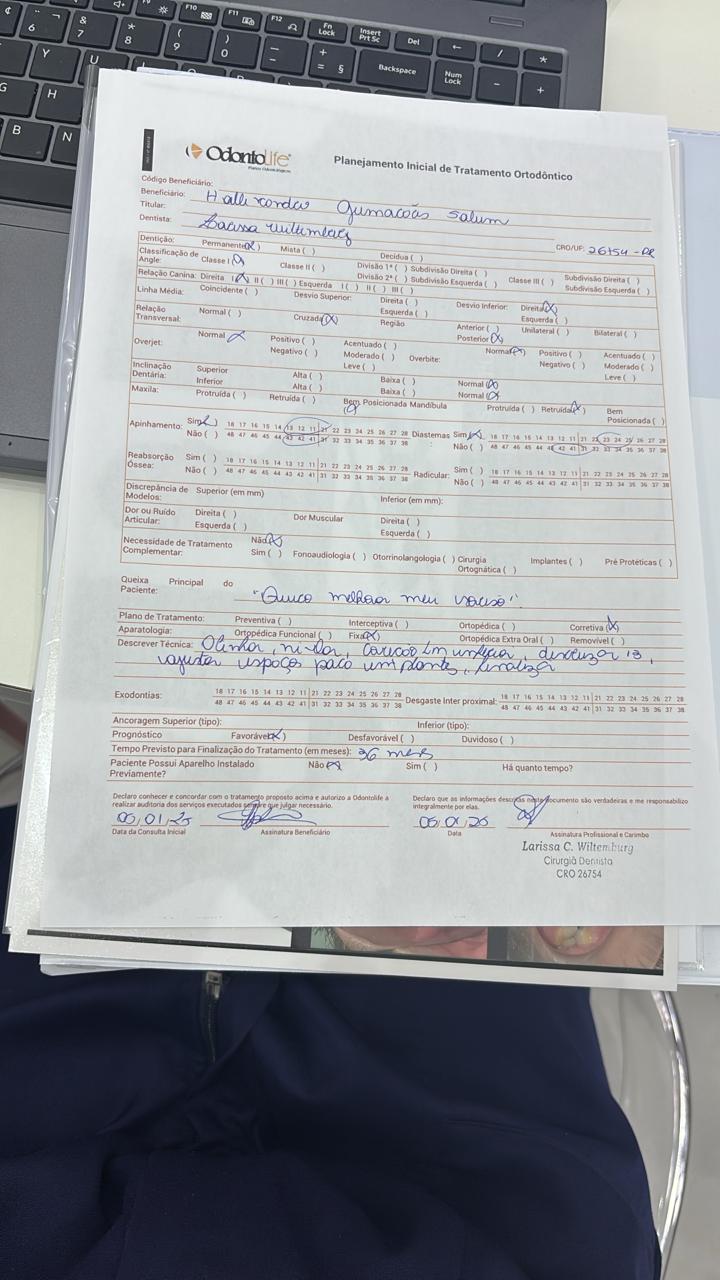 OdontoLife
Planos Odontológicos
Planejamento Inicial de Tratamento Ortodôntico
Código Beneficiário:
Beneficiário:
Titular: Salum
Dentista: Larissa Wiltemburg CRO/UF: 26754 - PR
Dentição: Permanente(x) Mista ( ) Decídua ( )
Classificação de Angle: Classe I (x) Classe II ( ) Divisão 1ª ( ) Subdivisão Direita ( ) Divisão 2ª ( ) Subdivisão Esquerda ( ) Classe III ( ) Subdivisão Direita ( ) Subdivisão Esquerda ( )
Relação Canina: Direita I (x) II ( ) III ( ) Esquerda I ( ) II ( ) III ( )
Linha Média: Coincidente ( ) Desvio Superior: Direita ( ) Esquerda ( ) Desvio Inferior: Direita(x) Esquerda ( )
Relação Transversal: Normal ( ) Cruzada(x) Região Anterior ( ) Posterior (x) Unilateral ( ) Bilateral ( )
Overjet: Normal x Positivo ( ) Negativo ( ) Acentuado ( ) Moderado ( ) Leve ( ) Overbite: Normal(x) Positivo ( ) Negativo ( ) Acentuado ( ) Moderado ( ) Leve ( )
Inclinação Dentária: Superior Alta ( ) Baixa ( ) Normal (x)
Inferior Alta ( ) Baixa ( ) Normal (x)
Maxila: Protruída ( ) Retruída ( ) Bem Posicionada Mandíbula Protruída ( ) Retruída(x) Bem Posicionada ( )
Apinhamento: Sim(x) 18 17 16 15 14 13 12 11 21 22 23 24 25 26 27 28 Diastemas Sim(x) 18 17 16 15 14 13 12 11 21 22 23 24 25 26 27 28
Não ( ) 48 47 46 45 44 43 42 41 31 32 33 34 35 36 37 38 Não ( ) 48 47 46 45 44 43 42 41 31 32 33 34 35 36 37 38
Reabsorção Óssea: Sim ( ) 18 17 16 15 14 13 12 11 21 22 23 24 25 26 27 28 Radicular: Sim ( ) 18 17 16 15 14 13 12 11 21 22 23 24 25 26 27 28
Não ( ) 48 47 46 45 44 43 42 41 31 32 33 34 35 36 37 38 Não ( ) 48 47 46 45 44 43 42 41 31 32 33 34 35 36 37 38
Discrepância de Modelos: Superior (em mm) Inferior (em mm):
Dor ou Ruído Articular: Direita ( ) Esquerda ( ) Dor Muscular Direita ( ) Esquerda ( )
Necessidade de Tratamento Complementar: Não(x) Sim ( ) Fonoaudiologia ( ) Otorrinolangologia ( ) Cirurgia Ortognática ( ) Implantes ( ) Pré Protéticas ( )
Queixa Principal do Paciente: "Quero melhorar meu sorriso".
Plano de Tratamento: Preventiva ( ) Interceptiva ( ) Ortopédica ( ) Corretiva (x)
Aparatologia: Ortopédica Funcional ( ) Fixa(x) Ortopédica Extra Oral ( ) Removível ( )
Descrever Técnica: Alinhar, nivelar, 13,
ajustar espaços para implantes, finalizar
Exodontias: 18 17 16 15 14 13 12 11 21 22 23 24 25 26 27 28 Desgaste Inter proximal: 18 17 16 15 14 13 12 11 21 22 23 24 25 26 27 28
48 47 46 45 44 43 42 41 31 32 33 34 35 36 37 38 48 47 46 45 44 43 42 41 31 32 33 34 35 36 37 38
Ancoragem Superior (tipo): Inferior (tipo):
Prognóstico Favorável(x) Desfavorável ( ) Duvidoso ( )
Tempo Previsto para Finalização do Tratamento (em meses): 36 meses
Paciente Possui Aparelho Instalado Previamente? Não (x) Sim ( ) Há quanto tempo?
Declaro conhecer e concordar com o tratamento proposto acima e autorizo a Odontolife a realizar auditoria dos serviços executados sempre que julgar necessário.
Declaro que as informações descritas neste documento são verdadeiras e me responsabilizo integralmente por elas.
Data da Consulta Inicial Assinatura Beneficiário Data Assinatura Profissional e Carimbo
Larissa C. Wiltemburg
Cirurgiã Dentista
CRO 26754